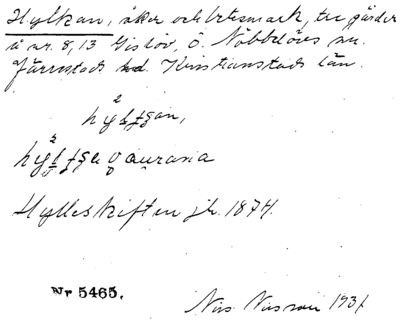 Hylkan, åker och betesmark, tre gårder
å nr. 8, 13 Gislöv, Ö. Nöbbelövs sn.
Järrestads hd. Kristianstads län.
Hylleskiften jb. 1874.
Nr 5465.
Nils Nilsson 1931